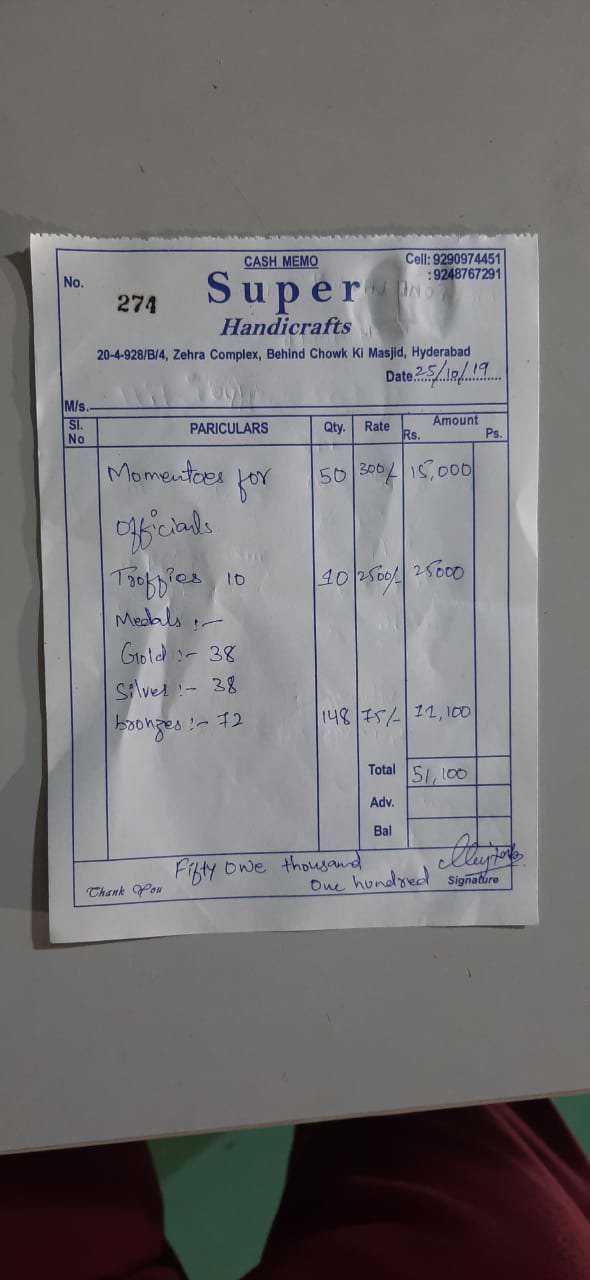 CASH MEMO
Cell: 9290974451
: 9248767291
No.
274
Super
Handicrafts
20-4-928/B/4, Zehra Complex, Behind Chowk Ki Masjid, Hyderabad
Date 25/10/19
M/s.
Sl. No PARICULARS Qty. Rate Amount Rs. Ps.
Momentoes for 50 300/- 15,000
officials
Troffies 10 10 2500/- 25000
Medals :-
Gold :- 38
Silver :- 38
bronzes :- 72 148 75/- 11,100
Total 51,100
Adv.
Bal
Fifty one thousand
One hundred
Thank You
Signature